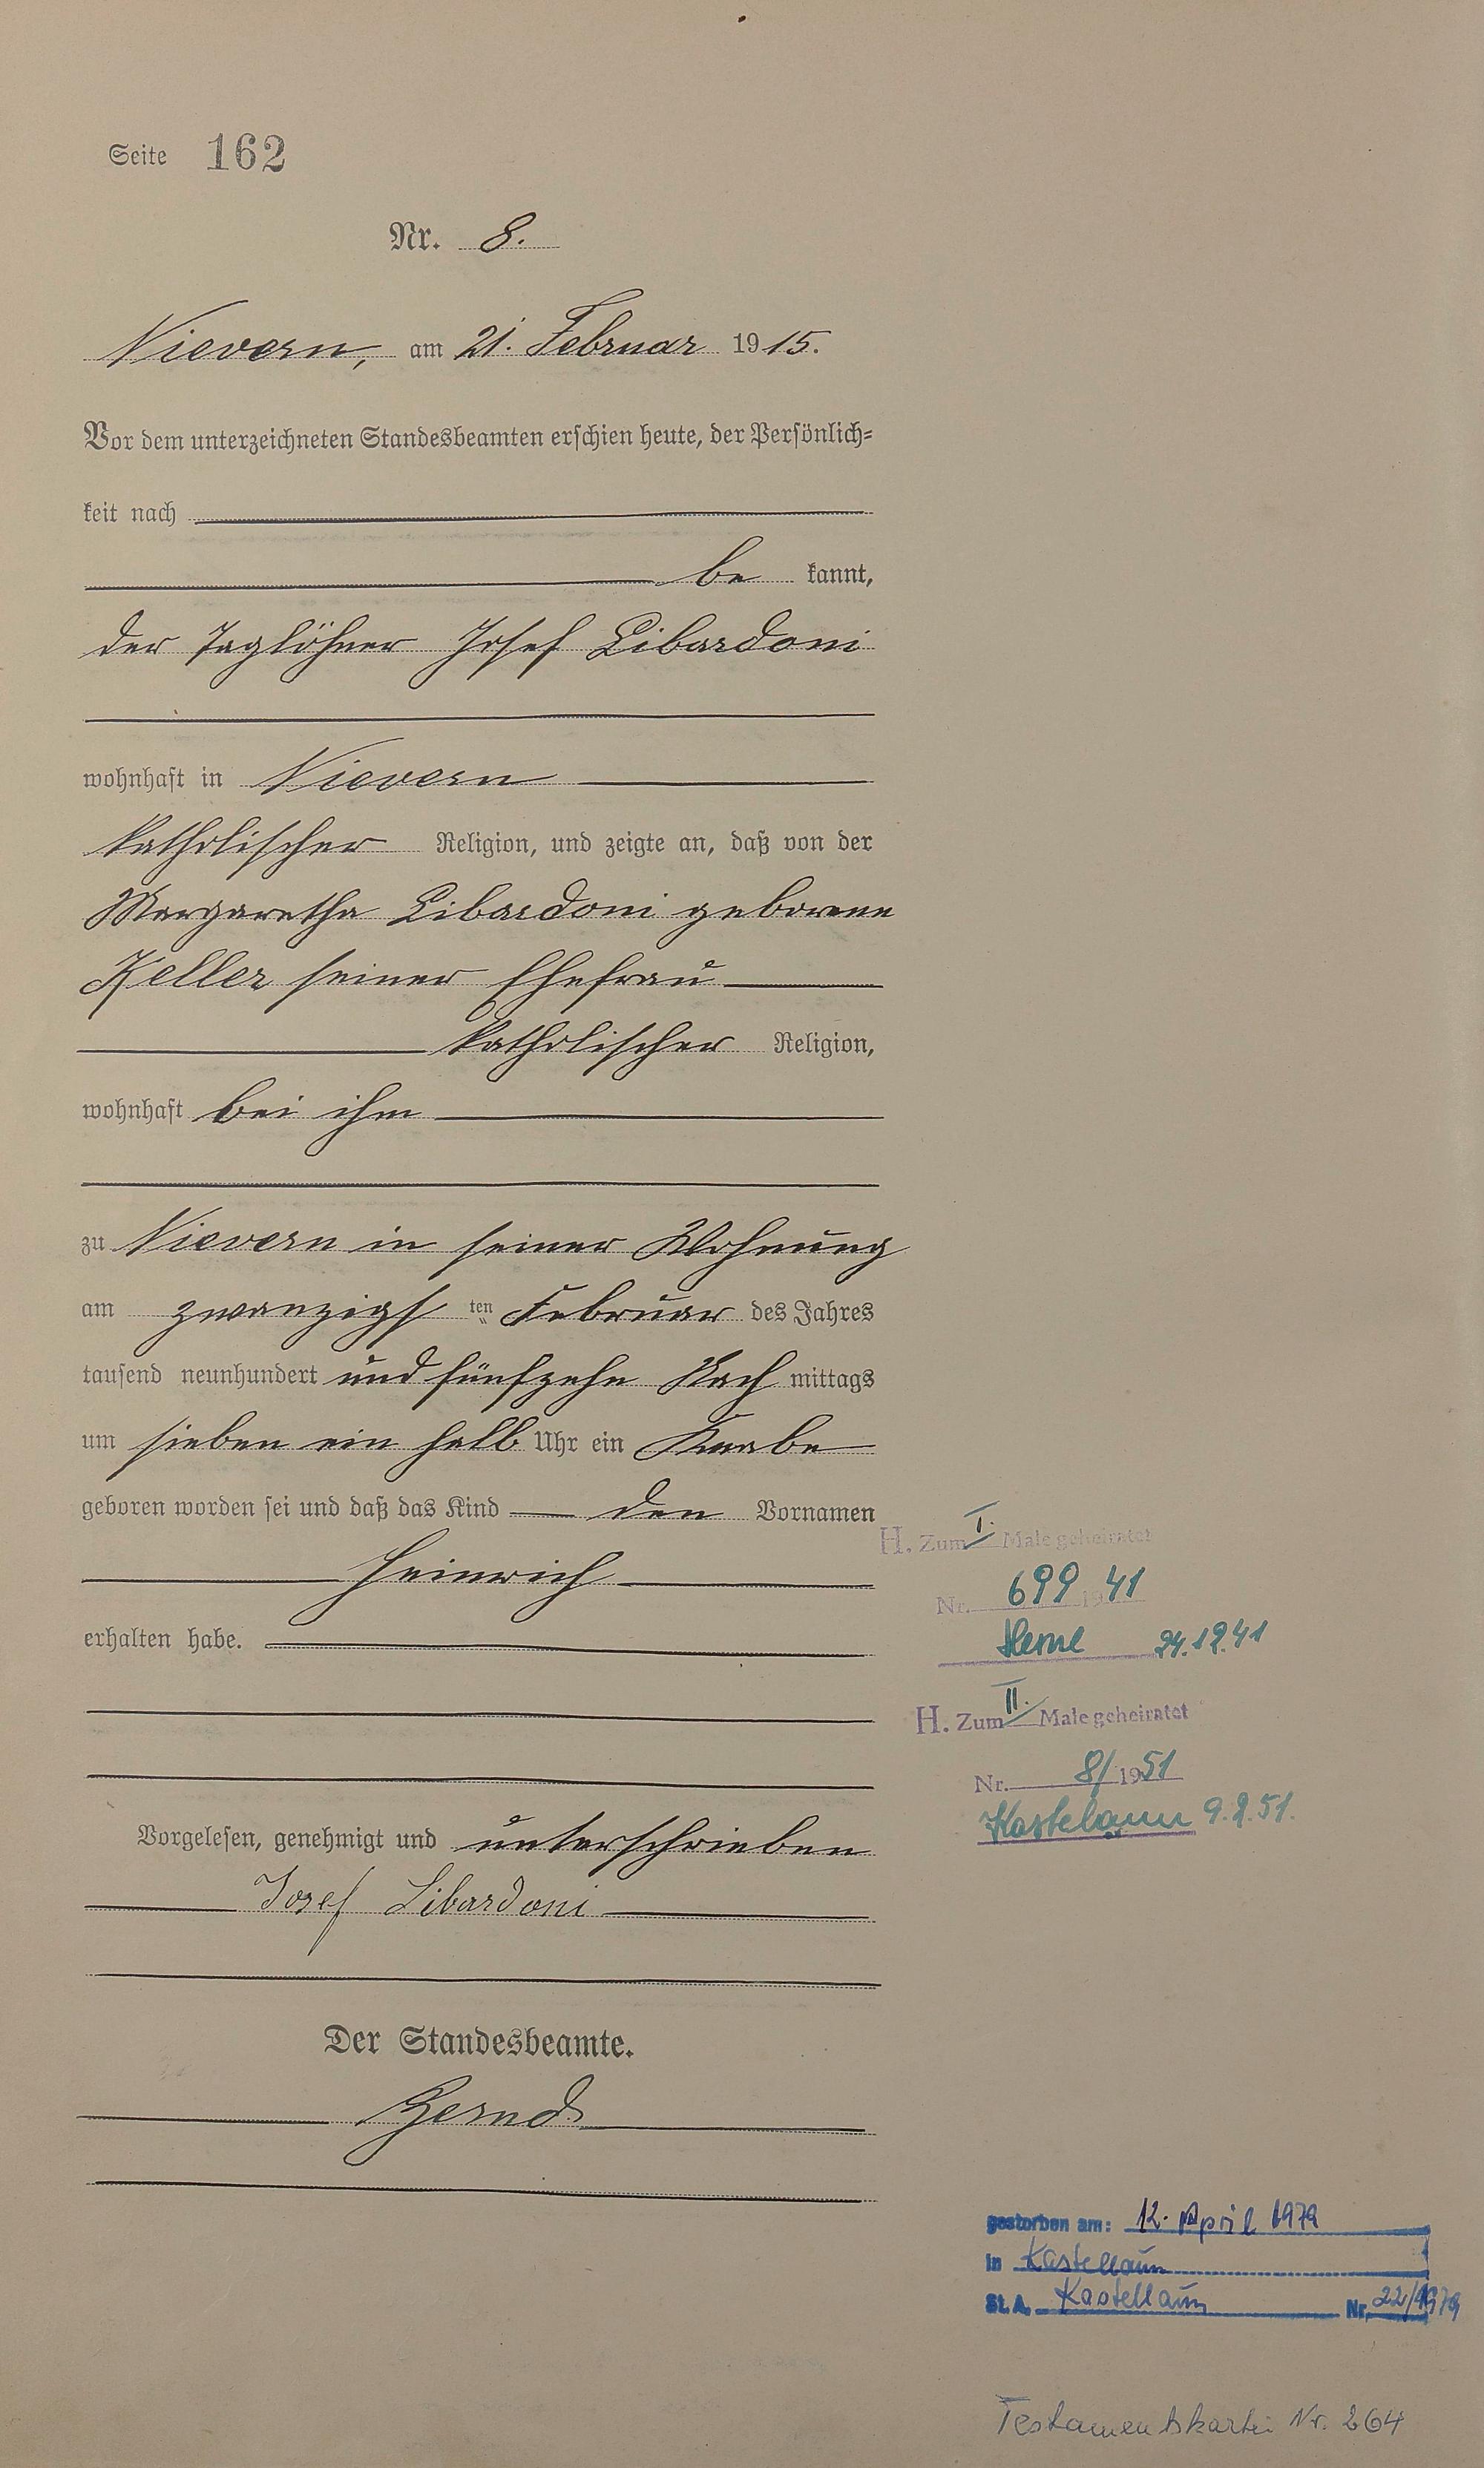 Seite 162
Nr. 8.
Nievern, am 21. Februar 1915.
Vor dem unterzeichneten Standesbeamten erschien heute, der Persönlich=
keit nach
be kannt,
der Taglöhner Josef Libardoni
wohnhaft in Nievern
katholischer Religion, und zeigte an, daß von der
Margaretha Libardoni geborene
Keller seiner Ehefrau
katholischer Religion,
wohnhaft bei ihm
zu Nievern in seiner Wohnung
am zwanzigsten Februar des Jahres
tausend neunhundert und fünfzehn Nachmittags
um sieben ein halb Uhr ein Knabe
geboren worden sei und daß das Kind den Vornamen
Heinrich
erhalten habe.
Vorgelesen, genehmigt und unterschrieben
Josef Libardoni
Der Standesbeamte.
H. Zum I. Male geheiratet
Nr. 699 1941
Herne 24.12.41
H. Zum II. Male geheiratet
Nr. 8/1951
Kastelaun 9.2.51.
gestorben am: 12. April 1979
in Kastellaun
St. A. Kastellaun Nr. 22/1979
Testamentskartei Nr. 264